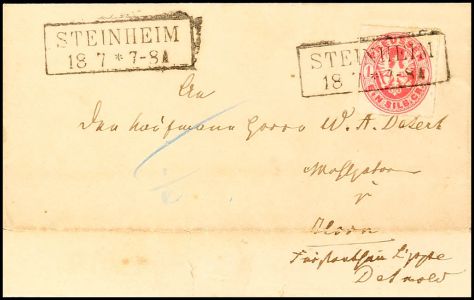 STEINHEIM
18 7 * 7-8A
STEINHEIM
18
EIN SILB. GR.
An
Den Kaufmann Herrn W. A.
Wohlgeboren
Fürstenthum Lippe
Detmold